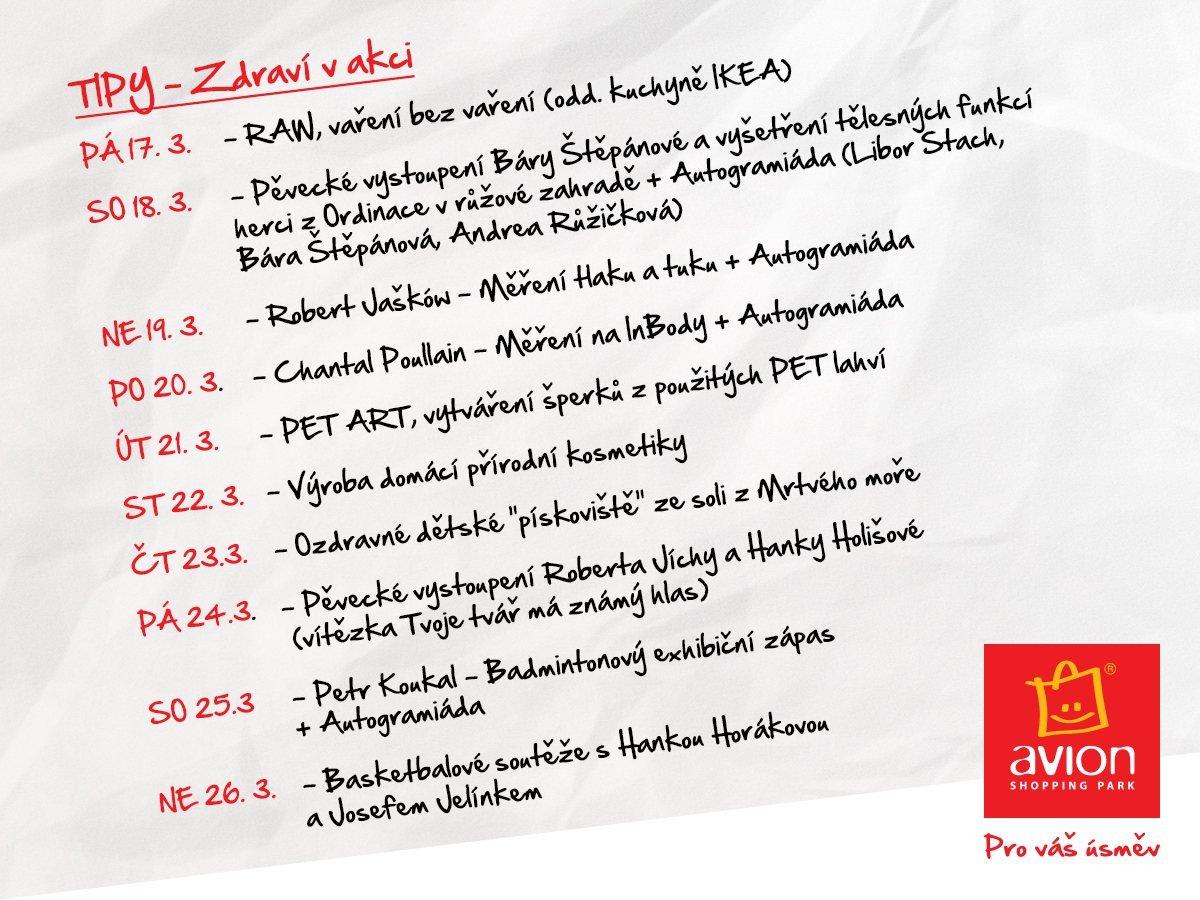 TIPY - Zdraví v akci
PÁ 17. 3. - RAW, vaření bez vaření (odd. kuchyně IKEA)
SO 18. 3. - Pěvecké vystoupení Báry Štěpánové a vyšetření tělesných funkcí
herci z Ordinace v růžové zahradě + Autogramiáda (Libor Stach,
Bára Štěpánová, Andrea Růžičková)
NE 19. 3. - Robert Jašków - Měření tlaku a tuku + Autogramiáda
PO 20. 3. - Chantal Poullain - Měření na InBody + Autogramiáda
ÚT 21. 3. - PET ART, vytváření šperků z použitých PET lahví
ST 22. 3. - Výroba domácí přírodní kosmetiky
ČT 23.3. - Ozdravné dětské "pískoviště" ze soli z Mrtvého moře
PÁ 24.3. - Pěvecké vystoupení Roberta Jíchy a Hanky Holišové
(vítězka Tvoje tvář má známý hlas)
SO 25.3 - Petr Koukal - Badmintonový exhibiční zápas
+ Autogramiáda
NE 26. 3. - Basketbalové soutěže s Hankou Horákovou
a Josefem Jelínkem
®
avion
SHOPPING PARK
Pro váš úsměv